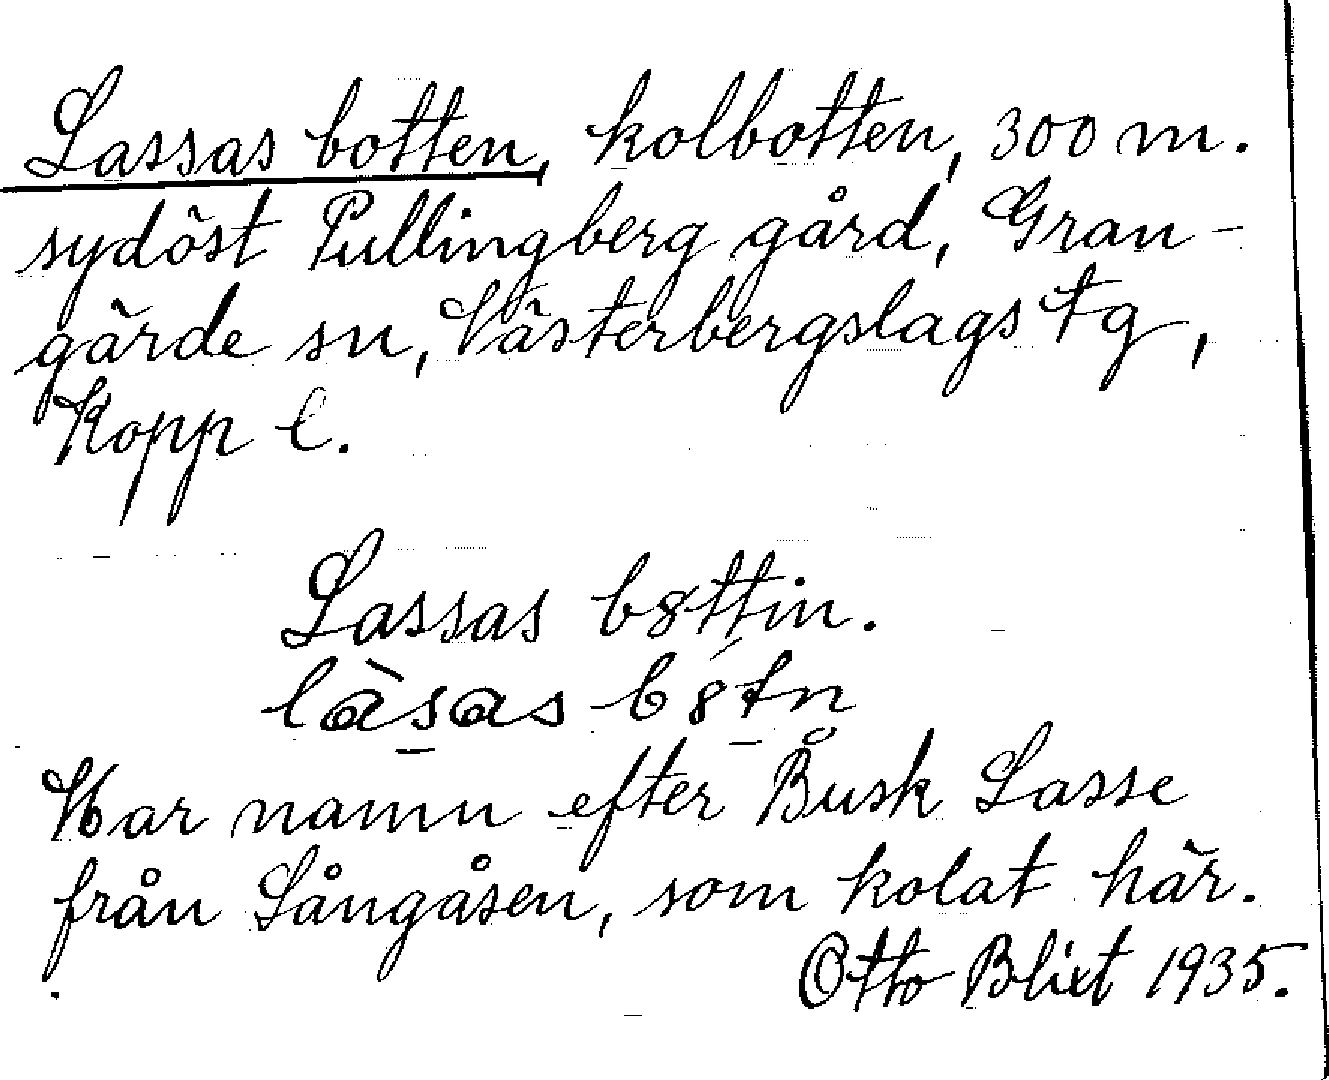 Lassas botten, kolbotten, 300 m.
sydöst Pullingberg gård, Gran-
gärde sn, Västerbergslags tg,
Kopp l.
Lassas b8ttin.
làsas b8tn
Har namn efter Busk Lasse
från Långåsen, som kolat här.
Otto Blixt 1935.